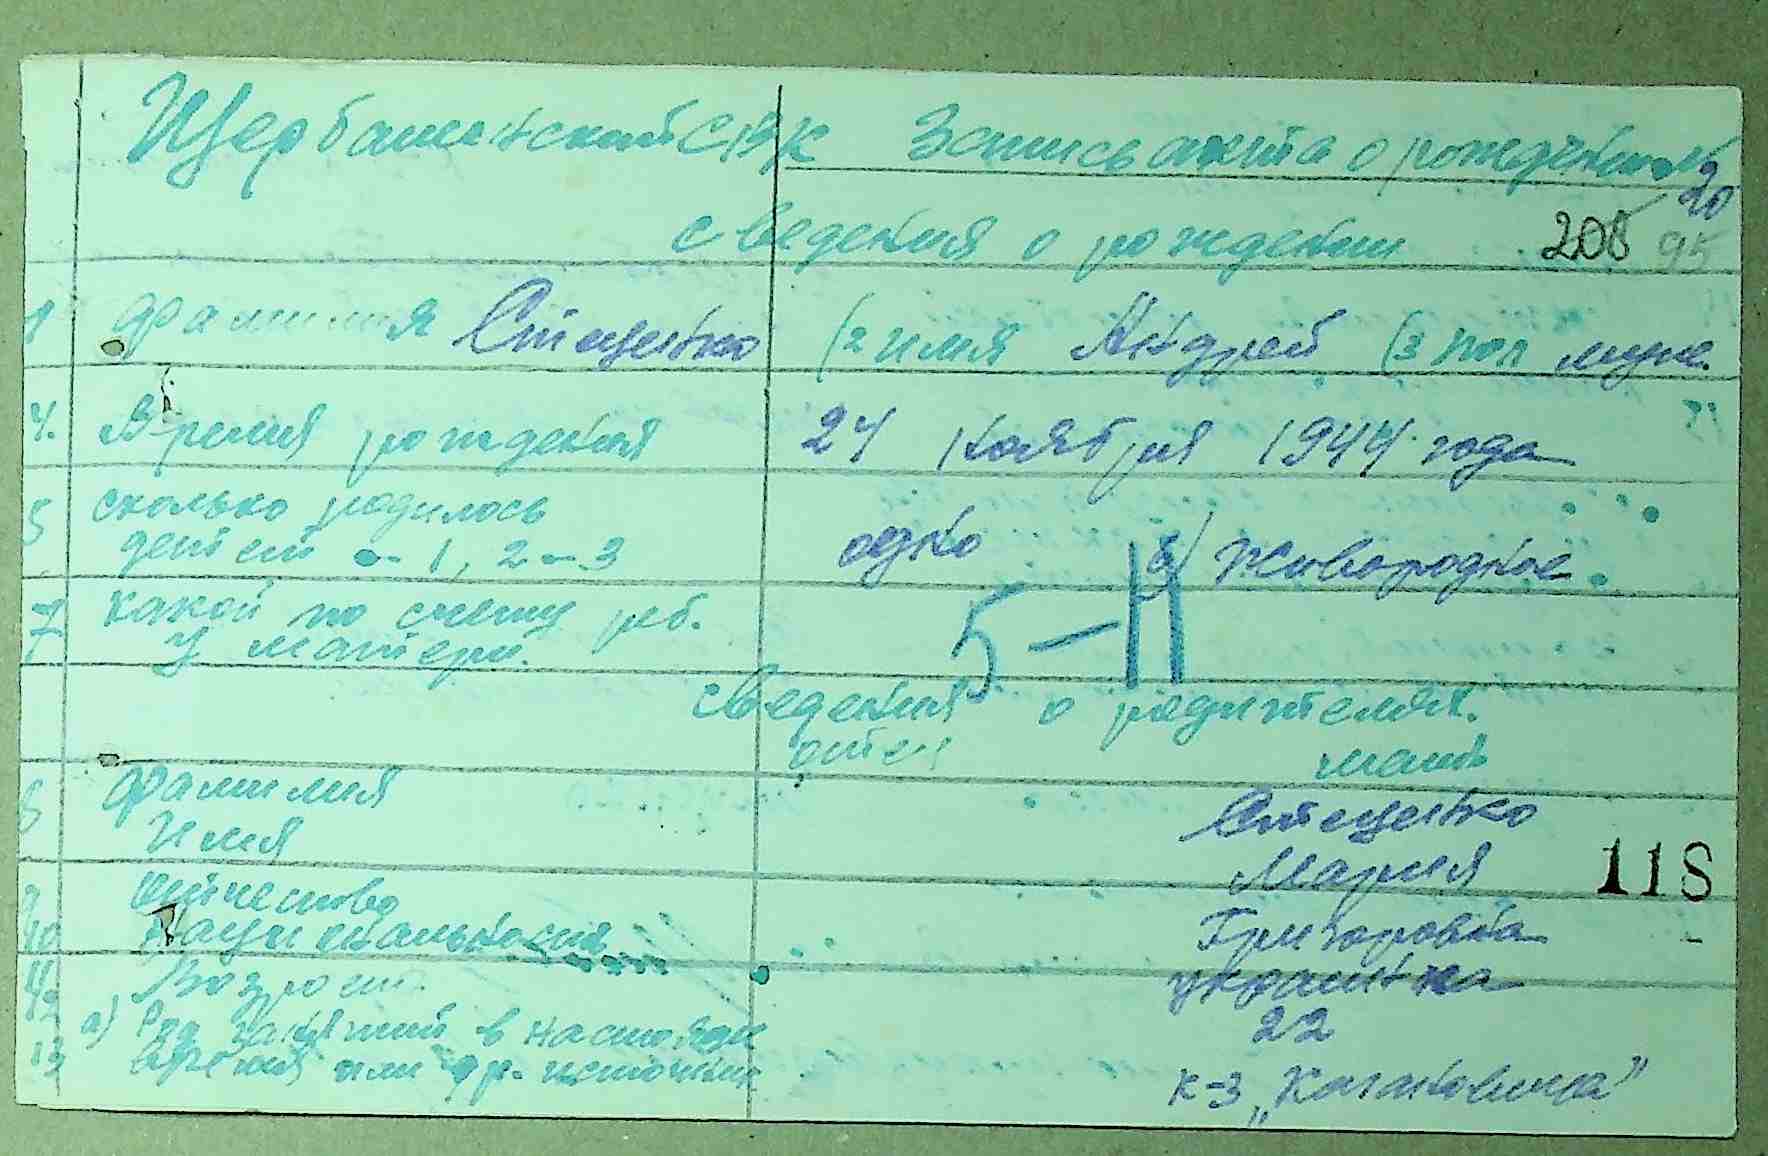 Щербанський С/В/К Запись акта о рождении №
20
сведения о рождении 208 95
1 фамилия Стеценко (2 имя Андрей (3 пол муж.
4. Время рождения 24 ноября 1944 года
5 сколько родилось
детей - 1, 2-3 одно б) живорожд
7 какой по счету реб.
у матери. 5-Н
сведения о родителях.
отец мать
8 фамилия Стеценко
Имя Мария 118
9 Отчество Григоровна
10 Национальность украинка
11 Возраст. 22
12 а) Род занятий в настоящ
13 время или др. источник к-з „Кагановича"